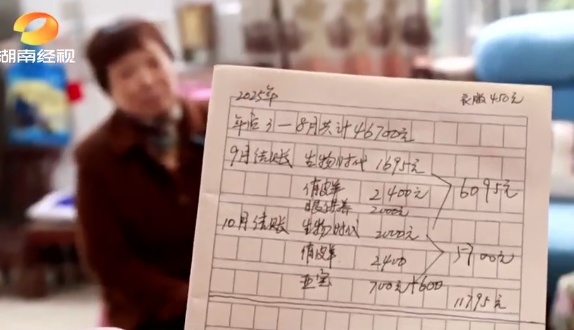 湖南经视
2025年
衣服450元
年应3—8月共计46700元
9月结账 生物时代 1695元
俏皮羊 2400元 6095元
眼 2000元
10月结账 生物时代 2000元
俏皮羊 2400 5700元
700元+600
11795元